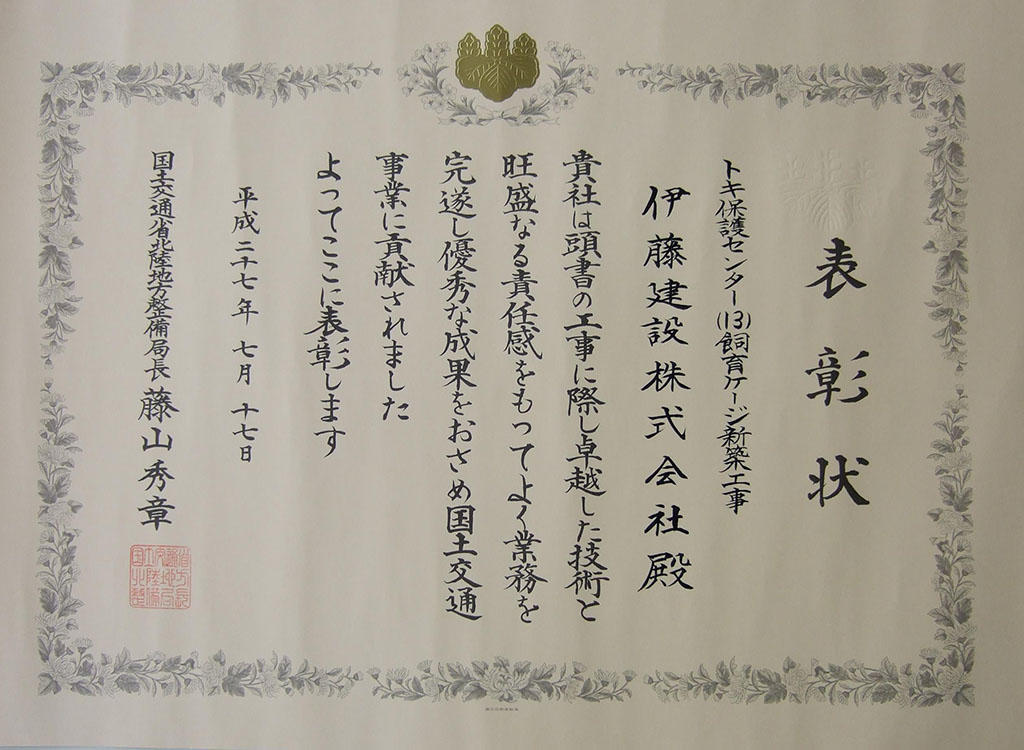 表彰状
トキ保護センター(13)飼育ケージ新築工事
伊藤建設株式会社殿
貴社は頭書の工事に際し卓越した技術と
旺盛なる責任感をもってよく業務を
完遂し優秀な成果をおさめ国土交通
事業に貢献されました
よってここに表彰します
平成二十七年 七月 十七日
国土交通省北陸地方整備局長 藤山秀章